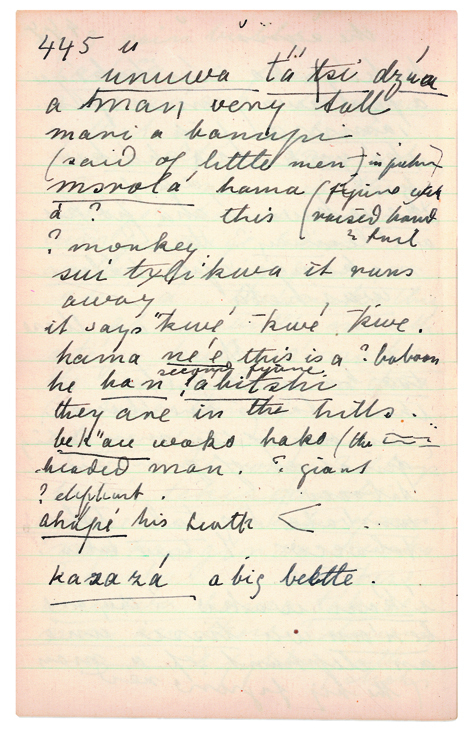 445 u
unuwa tä tsi dzúa
a man very tall
mani a banani
(said of little men) in picture
msrolá hama (figure with
á ? this (raised hand
? monkey & tail
sui txlikwa it runs
away
it says "kwé kwé, kwe.
hama né'e this is a ? baboon
second figure
he han !abitshi
they are in the hills.
bek"au wako hako (the
headed man. ? giant
? elephant.
ahúpé his teeth <
kazazá a big beetle.